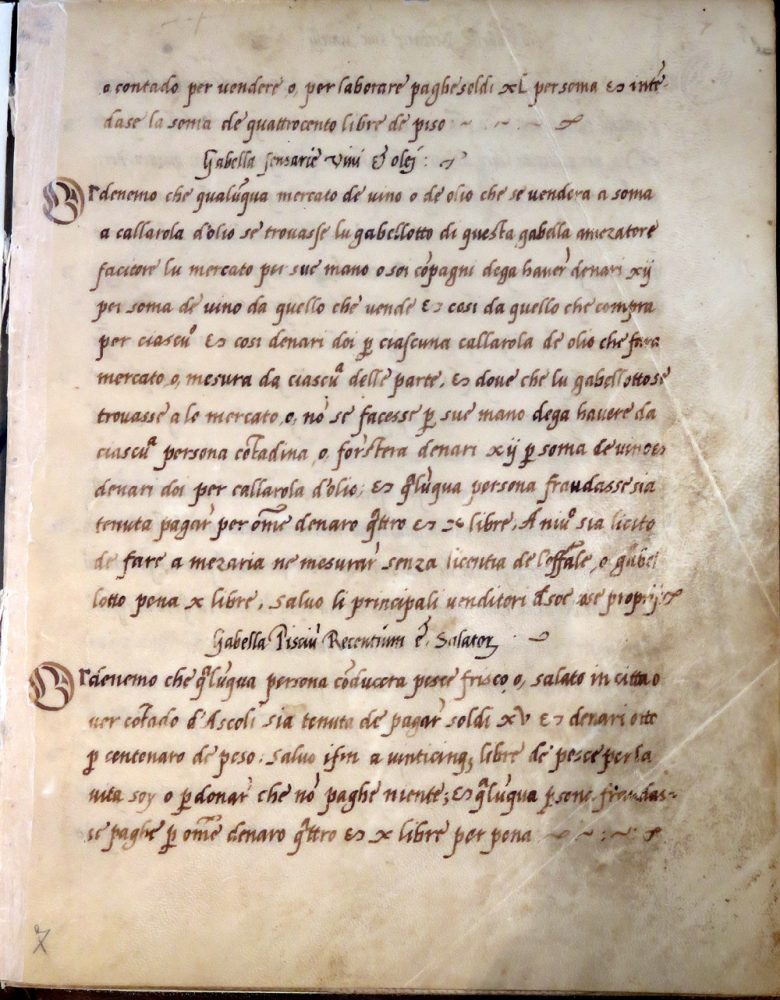 o contado per vendere o, per laborare paghe soldi xL per soma & intē-
dase la soma de quattrocento libre de piso
Gabella senzarie vini & olej :
Ordenemo che qualūqua mercato de vino o de olio che se vendera a soma
a callarola d'olio se trouasse lu gabellotto di questa gabella a mezatore
facitore lu mercato per sue mano o soi cōpagni dega hauer̄ denari xij
per soma de vino da quello che vende & cosi da quello che compra
per ciascūº & cosi denari doi ꝑ ciascuna callarola de olio che fara
mercato, o, mesura da ciascūª delle parte, & doue che lu gabellotto se
trouasse a lo mercato, o, nō se facesse ꝑ sue mano dega hauere da
ciascūª persona cōtadina, o, forstera denari xij ꝑ soma de vino &
denari doi per callarola d'olio; & qªlūqua persona fraudasse sia
tenuta pagar̄ per om̄e denaro qªttro & x libre, A niūº sia licito
de fare a mezaria ne mesurar̄ senza licentia de l'offale, o gabel
lotto pena x libre, salvo li principali venditori d soe proprij
Gabella Pisciū Recentium & Salatoꝝ
Ordenemo che qªlūqua persona cōducera pesce frisco, o, salato in citta o
ver cōtado d'Ascoli sia tenuta de pagar̄ soldi xv & denari otto
ꝑ centenaro de peso: salvo ifin a vinticinqꝫ libre de pesce per la
vita soy o ꝑ donar̄ che nō paghe niente; & qªlūqua ꝑsone fraudas-
se paghe ꝑ om̄e denaro qªttro & x libre per pena
7